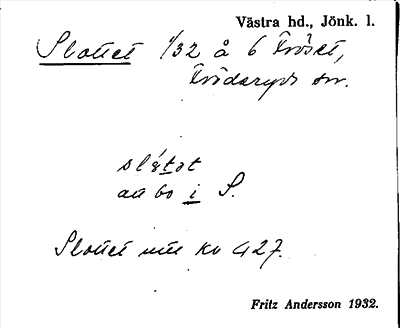 Västra hd., Jönk. l.
Slottet 1/32 å 6 Fröset,
Bredaryds sn.
slétət
au bo i S.
Slottet utu kv 427.
Fritz Andersson 1932.